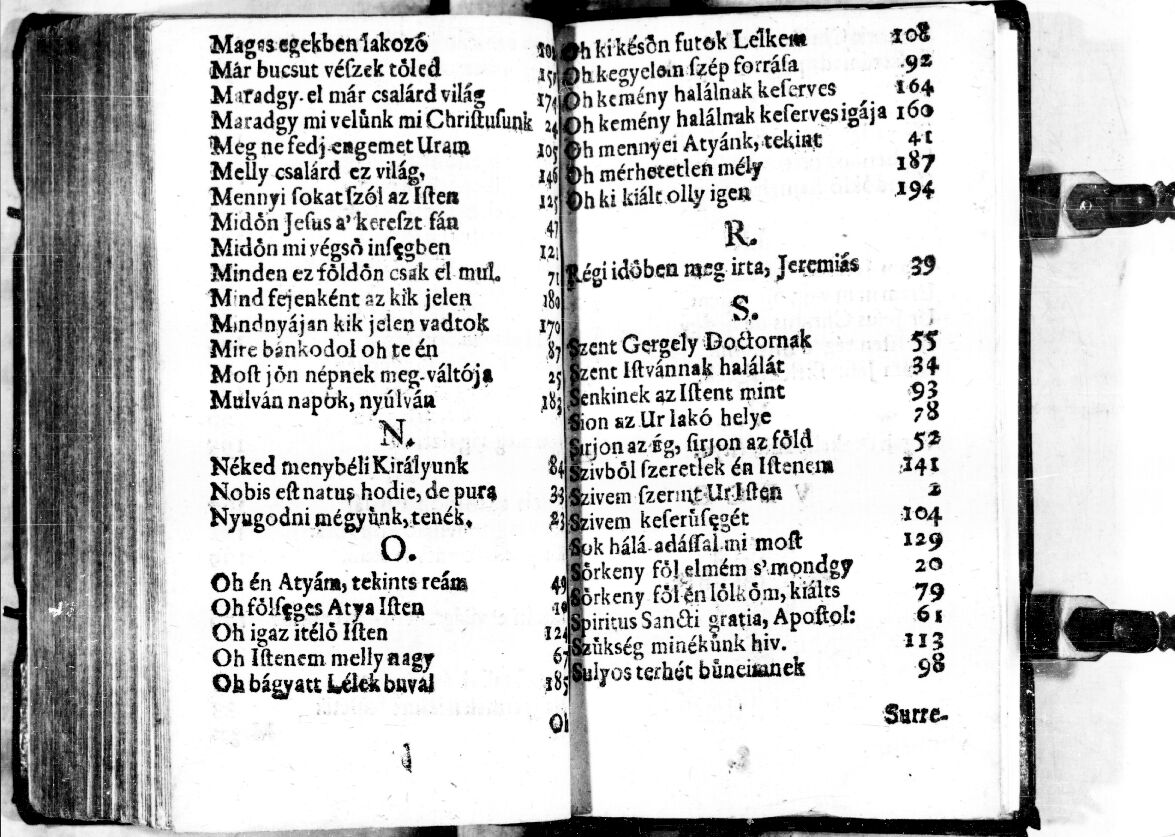 Magos egekben lakozó 101
Már bucsut véſzek tŏled 151
Maradgy el már csalárd világ 174
Maradgy mi velůnk mi Chriſtuſunk 24
Meg ne fedj engemet Uram 105
Melly csalárd ez világ, 146
Mennyi ſokat ſzól az Iſten 125
Midŏn Jeſus a' kereſzt fán 47
Midŏn mi végsŏ inſęgben 121
Minden ez fŏldŏn csak el mul. 71
Mind fejenként az kik jelen 180
Mindnyájan kik jelen vadtok 170
Mire bánkodol oh te én 87
Moſt jŏn népnek meg-váltója 25
Mulván napok, nyúlván 183
N.
Néked menybéli Királyunk 84
Nobis eſt natus hodie, de pura 33
Nyugodni mégyůnk, tenék, 23
O.
Oh én Atyám, tekints reám 49
Oh fŏlſęges Atya Iſten 10
Oh igaz itélŏ Iſten 124
Oh Iſtenem melly nagy 67
Oh bágyatt Lélek buval 185
Oh
Oh ki késŏn futok Lelkem 108
Oh kegyelem ſzép forráſa 92
Oh kemény halálnak keſerves 164
Oh kemény halálnak keſerves igája 160
Oh mennyei Atyánk, tekint 41
Oh mérhetetlen mély 187
Oh ki kiált olly igen 194
R.
Régi idŏben meg irta, Jeremiás 39
S.
Szent Gergely Doctornak 55
Szent Iſtvánnak halálát 34
Senkinek az Iſtent mint 93
Sion az Ur lakó helye 78
Sirjon az ég, ſirjon az fŏld 52
Szivbŏl ſzeretlek én Iſtenem 141
Szivem ſzerint Ur Iſten 2
Szivem keſerůſęgét 104
Sok hálá-adáſſal mi moſt 129
Sŏrkeny fŏl elmém s' mondgy 20
Sŏrkeny fŏl én lŏlkŏm, kiálts 79
Spiritus Sancti gratia, Apoſtol: 61
Szůkség minékůnk hiv. 113
Sulyos terhét bůneimnek 98
Surre-